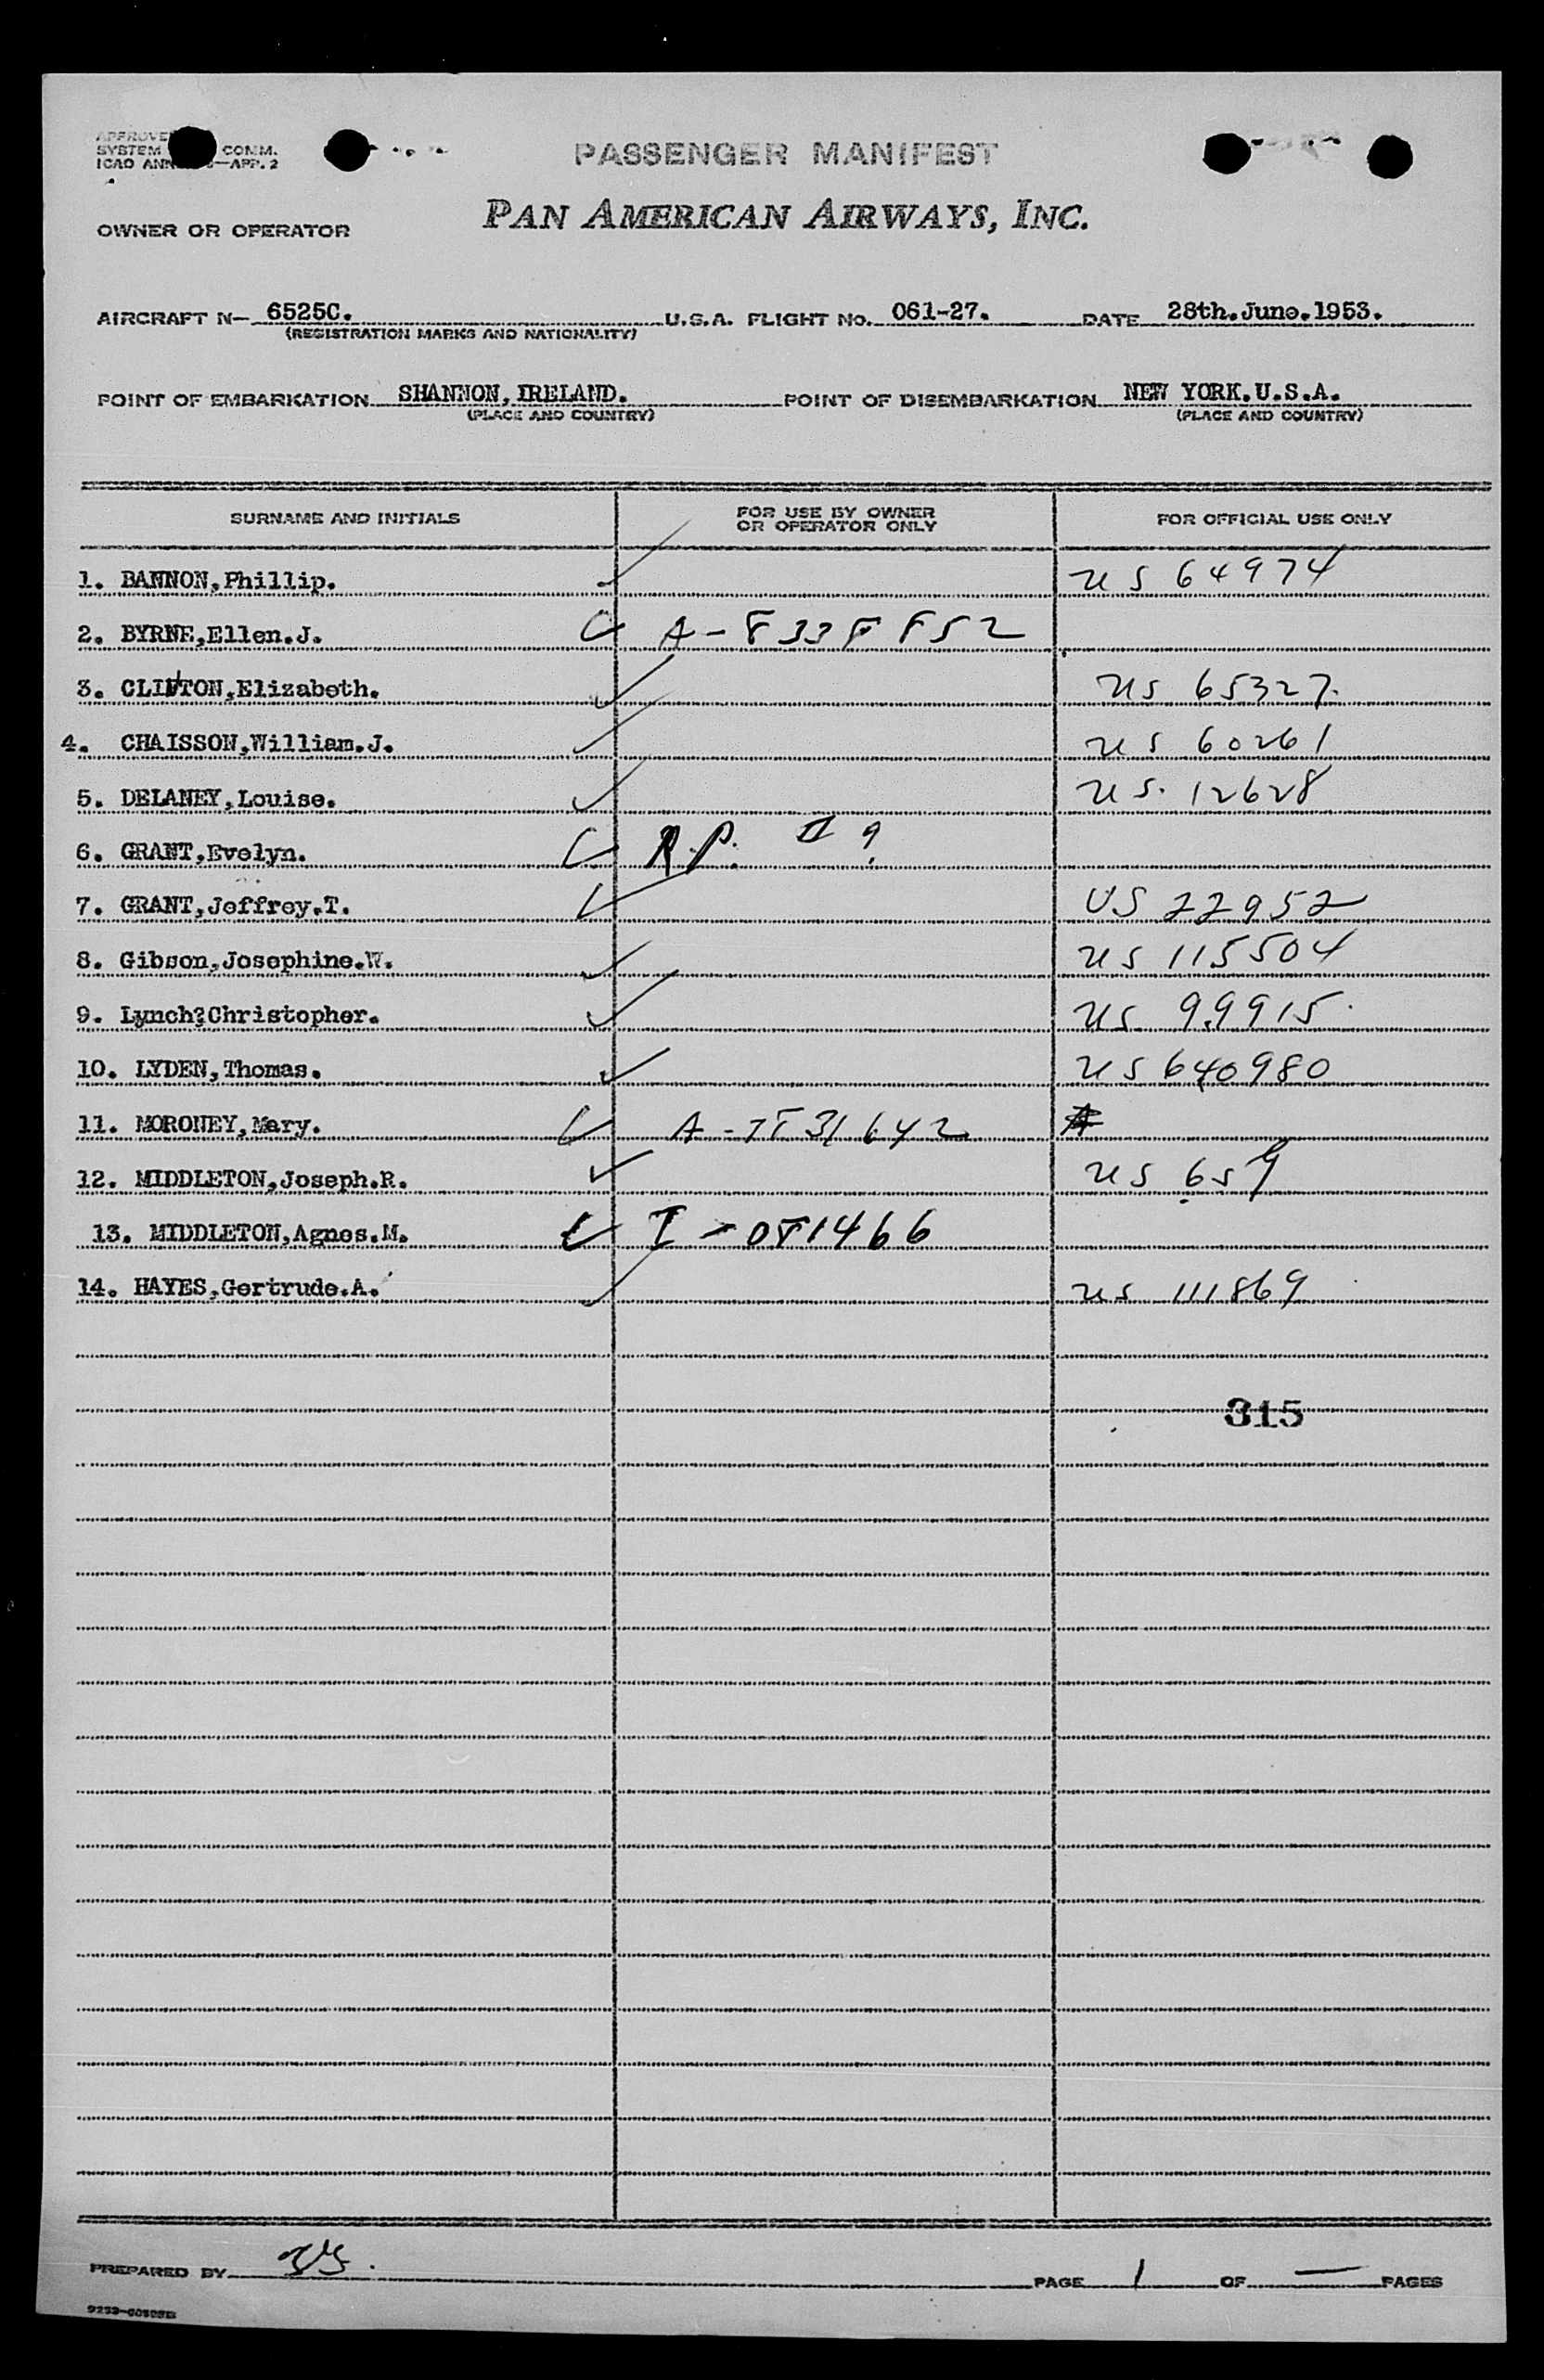 PASSENGER MANIFEST
SYSTEM COMM.
ICAO APP. 2
OWNER OR OPERATOR PAN AMERICAN AIRWAYS, INC.
AIRCRAFT N- 6525C. U.S.A. FLIGHT NO. 061-27. DATE 28th.June.1953.
(REGISTRATION MARKS AND NATIONALITY)
POINT OF EMBARKATION SHANNON, IRELAND. POINT OF DISEMBARKATION NEW YORK.U.S.A.
(PLACE AND COUNTRY) (PLACE AND COUNTRY)
SURNAME AND INITIALS FOR USE BY OWNER OR OPERATOR ONLY FOR OFFICIAL USE ONLY
1. BANNON,Phillip. US 64974
2. BYRNE,Ellen.J.
3. CLIFTON,Elizabeth. US 65327.
4. CHAISSON,William.J. US 60261
5. DELANEY,Louise. US. 12628
6. GRANT,Evelyn. R.P. II ?
7. GRANT,Jeffrey.T. US 22952
8. Gibson,Josephine.W. US 115504
9. Lynch?Christopher. US 99915
10. LYDEN,Thomas. US 640980
11. MORONEY,Mary.
12. MIDDLETON,Joseph.R. US 659
13. MIDDLETON,Agnes.M.
14. HAYES,Gertrude.A. US 111869
315
PREPARED BY PAGE 1 OF — PAGES